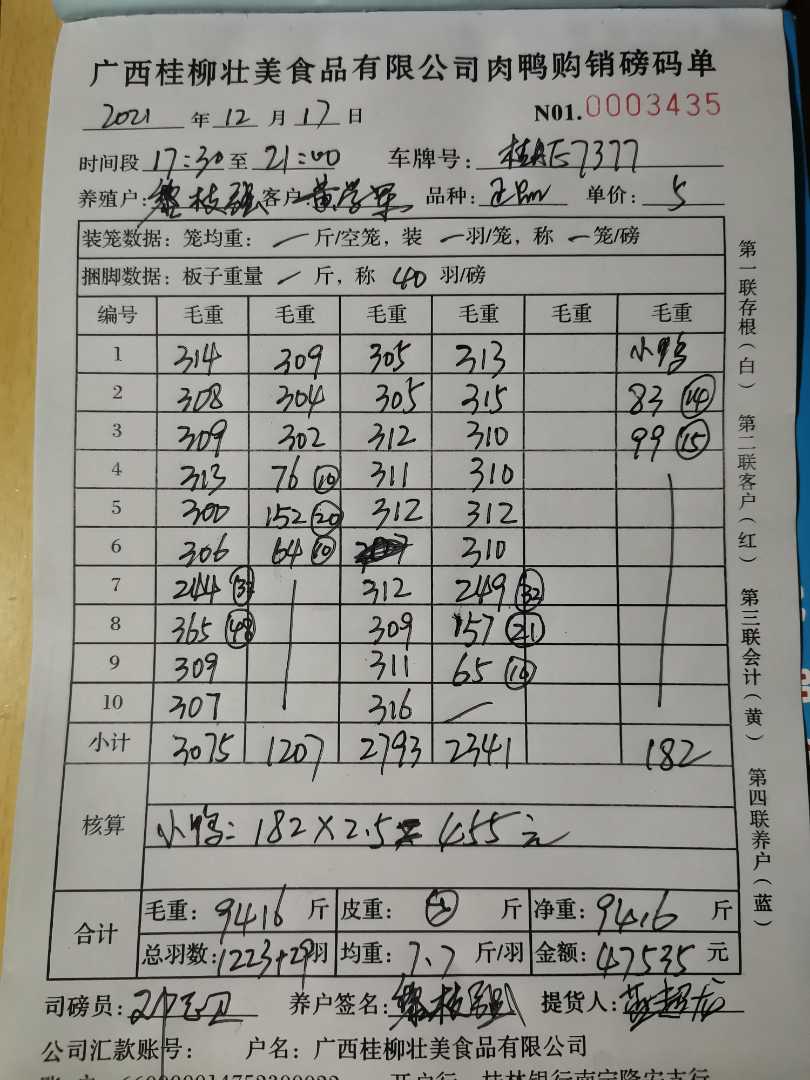 广西桂柳壮美食品有限公司肉鸭购销磅码单
2021 年 12 月 17 日 N01.0003435
时间段 17:30 至 21:00 车牌号: 7377
养殖户: 枝强 客户 黄学军 品种: 单价: 5
装笼数据: 笼均重: 一 斤/空笼, 装 一羽/笼, 称 一笼/磅
捆脚数据: 板子重量 一 斤, 称 40 羽/磅
编号 毛重 毛重 毛重 毛重 毛重 毛重
1 314 309 305 313 小鸭
2 308 304 305 315 83 14
3 309 302 312 310 99 15
4 313 76 10 311 310
5 300 152 20 312 312
6 306 64 10 310
7 244 312 249 32
8 365 48 309 157 21
9 309 311 65 10
10 307 316
小计 3075 1207 2793 2341 182
核算 小鸭: 182×2.5=455元
合计 毛重: 9416 斤 皮重: 斤 净重: 9416 斤
总羽数: 1223+29羽 均重: 7.7 斤/羽 金额: 47535 元
司磅员: 养户签名: 枝强 提货人:
公司汇款账号: 户名: 广西桂柳壮美食品有限公司
第一联存根(白) 第二联客户(红) 第三联会计(黄) 第四联养户(蓝)